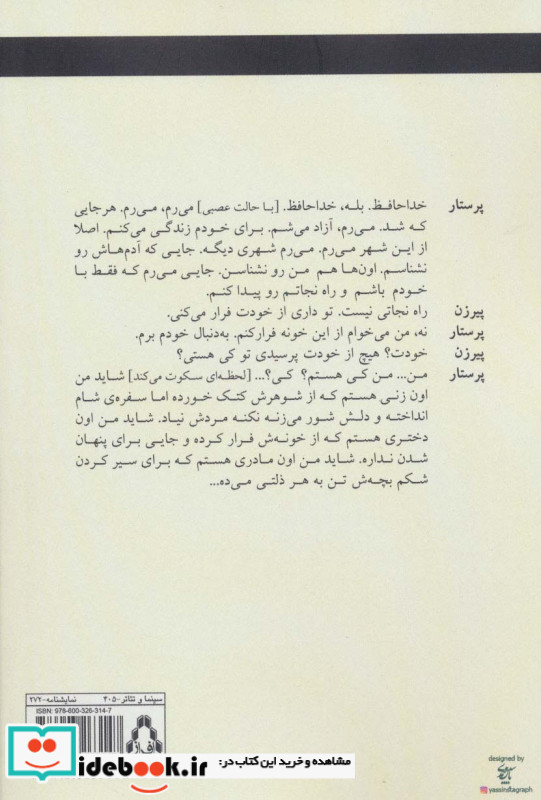 پرستار خداحافظ. بله، خداحافظ. [با حالت عصبی] می‌رم، می‌رم. هرجایی
که شد. می‌رم، آزاد می‌شم. برای خودم زندگی می‌کنم. اصلا
از این شهر می‌رم. می‌رم شهری دیگه. جایی که آدم‌هاش رو
نشناسم. اون‌ها هم من رو نشناسن. جایی می‌رم که فقط با
خودم باشم و راه نجاتم رو پیدا کنم.
پیرزن راه نجاتی نیست. تو داری از خودت فرار می‌کنی.
پرستار نه، من می‌خوام از این خونه فرارکنم. به‌دنبال خودم برم.
پیرزن خودت؟ هیچ از خودت پرسیدی تو کی هستی؟
پرستار من... من کی هستم؟ کی؟... [لحظه‌ای سکوت می‌کند] شاید من
اون زنی هستم که از شوهرش کتک خورده اما سفره‌ی شام
انداخته و دلش شور می‌زنه نکنه مردش نیاد. شاید من اون
دختری هستم که از خونه‌ش فرار کرده و جایی برای پنهان
شدن نداره. شاید من اون مادری هستم که برای سیر کردن
شکم بچه‌ش تن به هر ذلتی می‌ده...
سینما و تئاتر-۴۰۵ نمایشنامه-۲۷۲
ISBN: 978-600-326-314-7
افراز
مشاهده و خرید این کتاب در:
idebook.ir
designed by
yassinifagraph